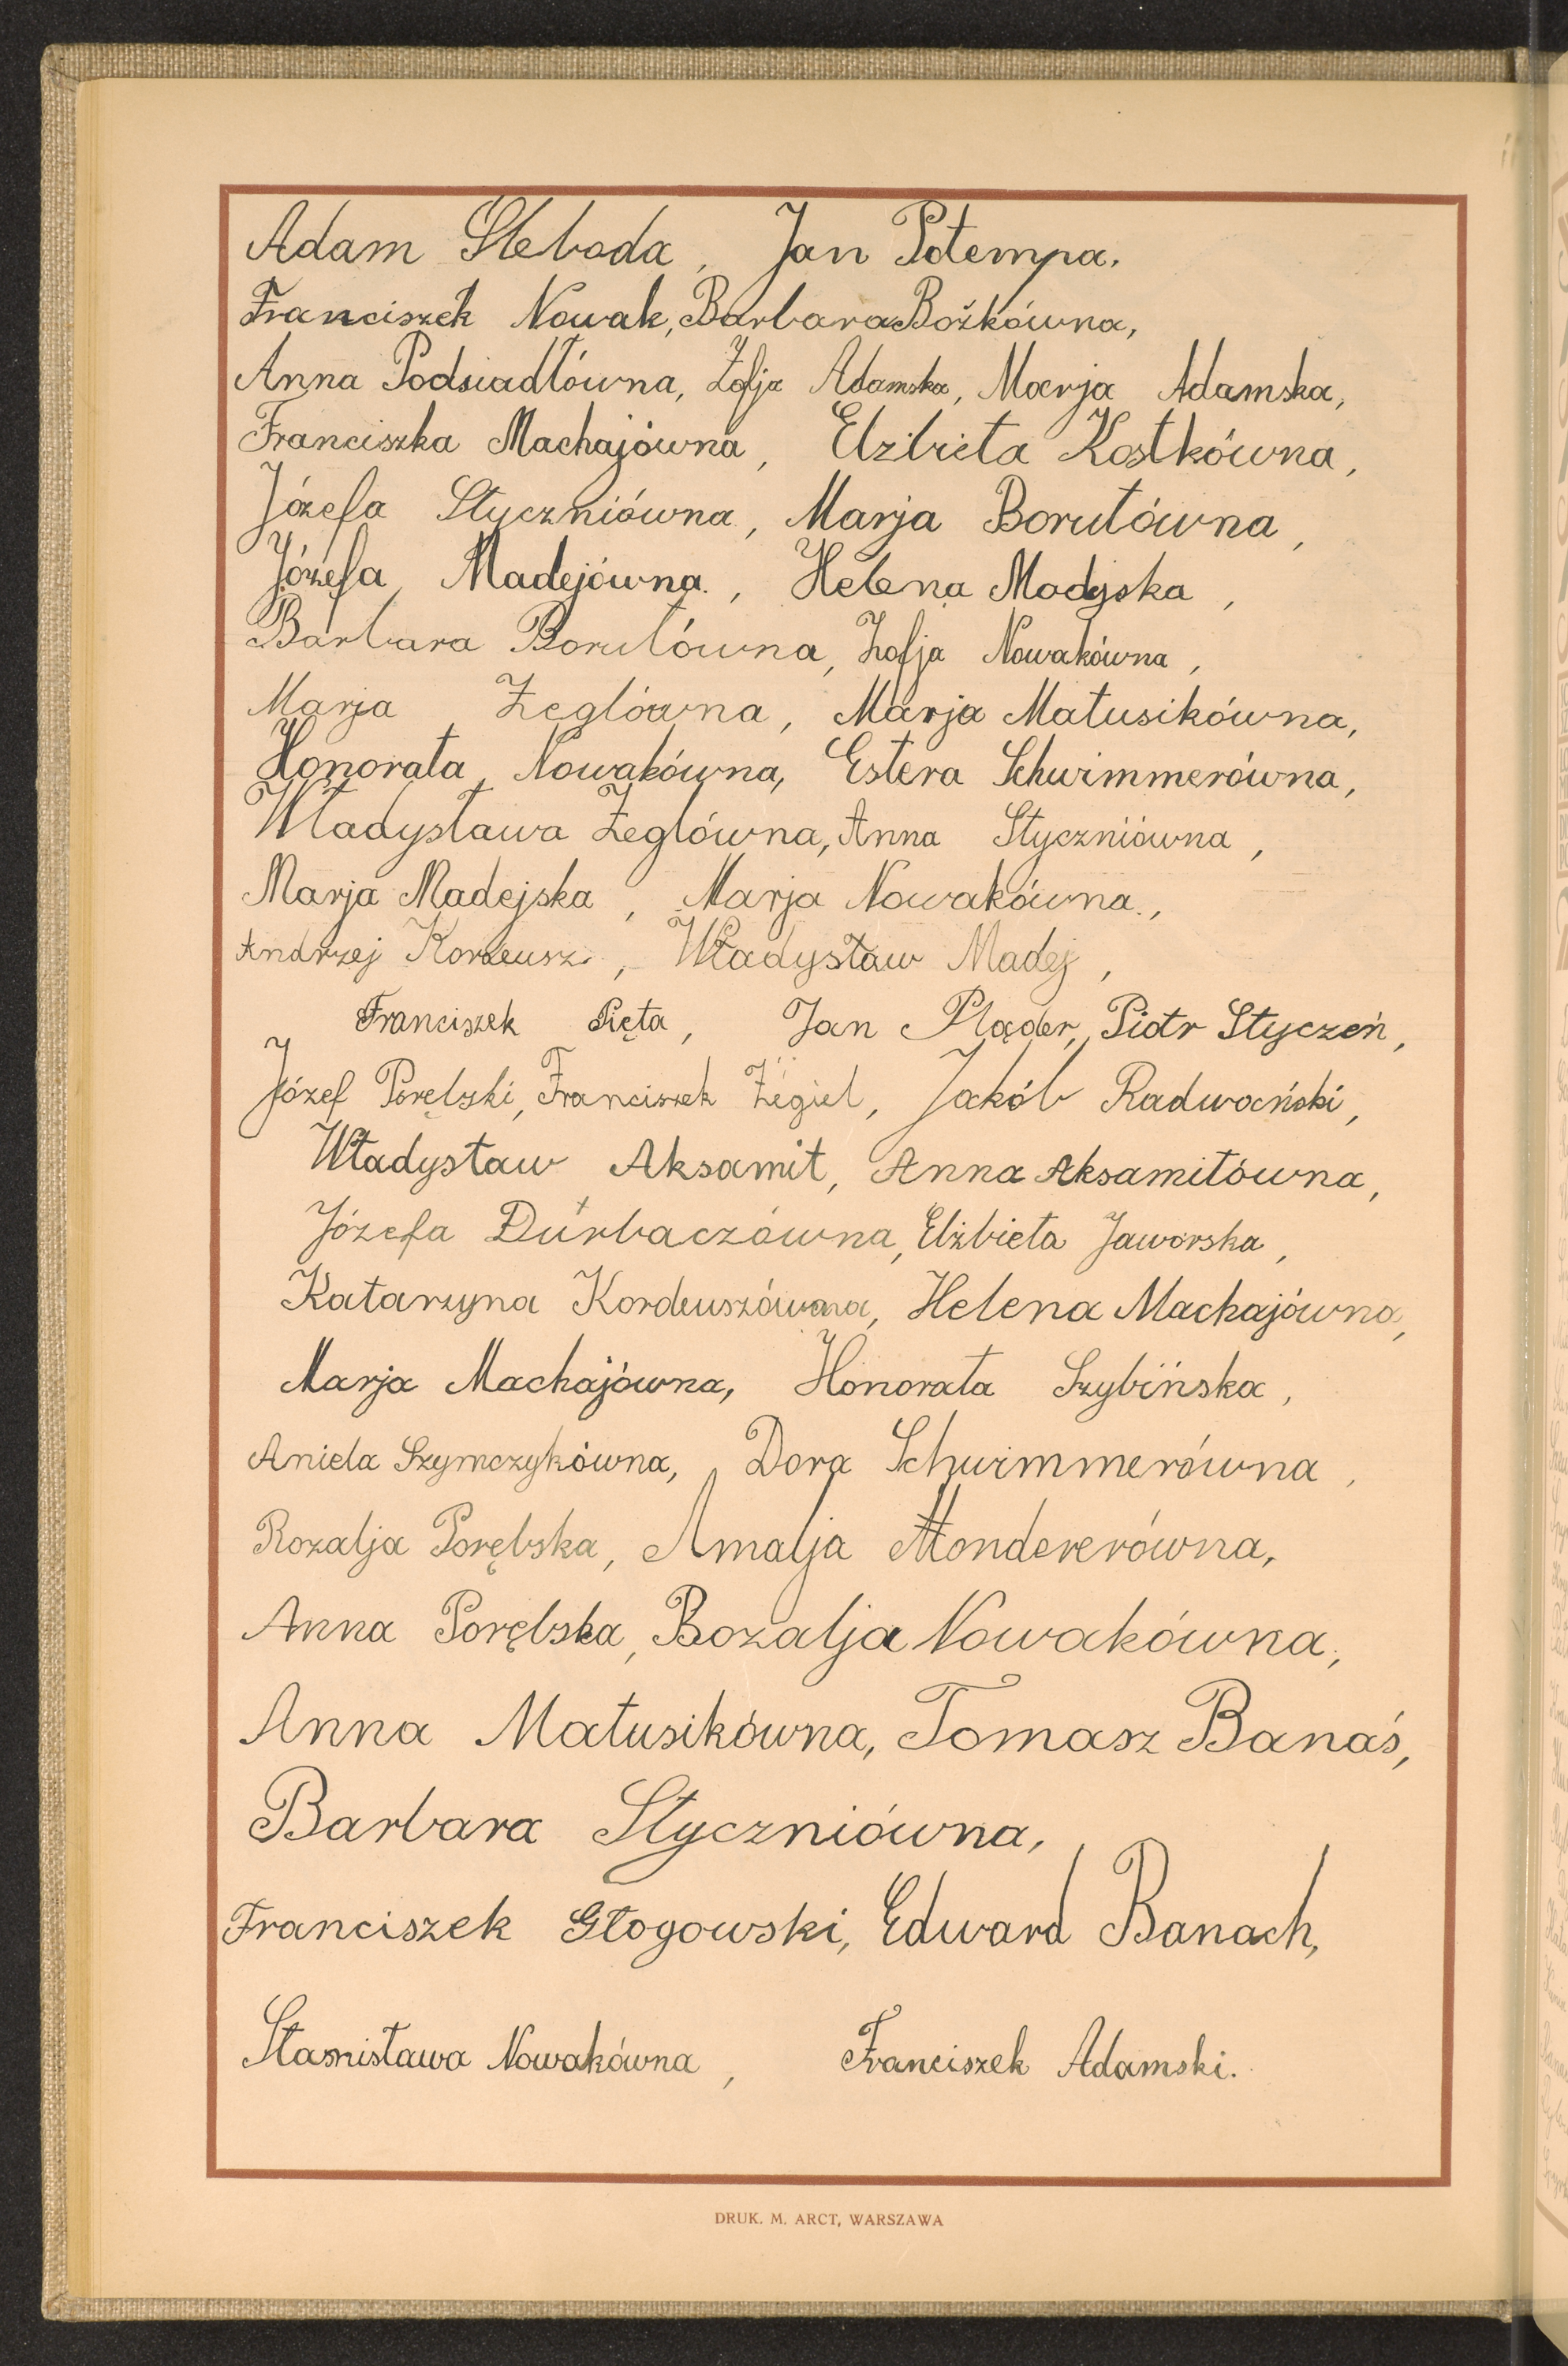 Adam Sleboda, Jan Potempa.
Franciszek Nowak, Barbara Bożkówna,
Anna Podsiadłówna, Zofja Adamska, Marja Adamska,
Franciszka Machajówna, Elzbieta Kostkówna,
Józefa Styczniówna, Marja Borutówna,
Józefa Madejówna, Helena Madejska,
Barbara Borutówna, Zofja Nowakówna,
Marja Żeglówna, Marja Matusikówna,
Honorata Nowakówna, Estera Schwimmerówna,
Władysława Żeglówna, Anna Styczniówna,
Marja Madejska, Marja Nowakówna,
Andrzej Władysław Madej,
Franciszek Pięta, Jan Pląder, Piotr Styczeń,
Józef Porębski, Franciszek Żegiel, Jakób Radwański,
Władysław Aksamit, Anna Aksamitówna,
Józefa Durbaczówna, Elżbieta Jaworska,
Katarzyna Kordeuszówna, Helena Machajówna,
Marja Machajówna, Honorata Szybińska,
Aniela Szymczykówna, Dora Schwimmerówna,
Rozalja Porębska, Amalja Mondererówna,
Anna Porębska, Rozalja Nowakówna,
Anna Matusikówna, Tomasz Banaś,
Barbara Styczniówna,
Franciszek Głogowski, Edward Banach,
Stanisława Nowakówna, Franciszek Adamski.
DRUK. M. ARCT, WARSZAWA